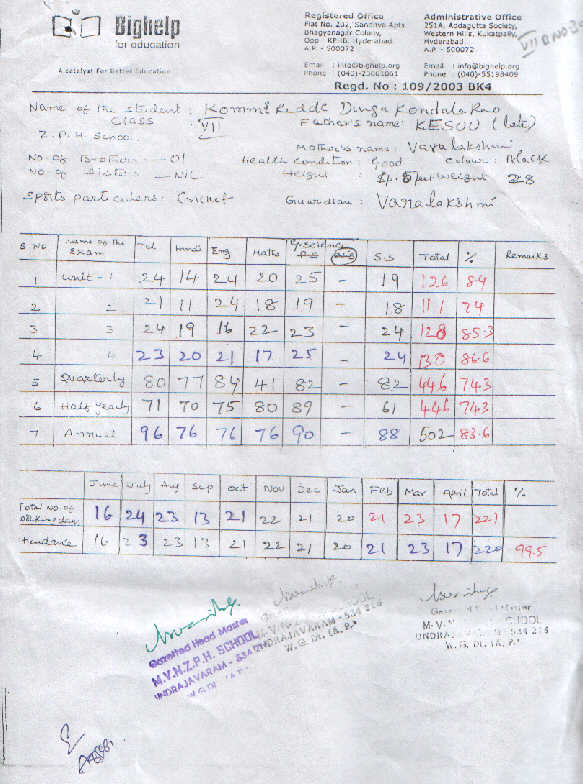 Bighelp
for education
A catalyst for Better Education
Registered Office
Flat No. 202, Sandhya Apts
Bhagyanagar Colony,
Opp : KPHB, Hyderabad
A.P. - 500072
Email : info@bighelp.org
Phone : (040)-23061061
Administrative Office
251A, Addagutta Society,
Western Hills, Kukatpally,
Hyderabad
A.P. - 500072
Email : info@bighelp.org
Phone : (040)-55198409
Regd. No : 109/2003 BK4
Name of the student : Kommireddi Durga Kondala Rao
CLASS : VII Father's name: KESUU (late)
Z.P.H. School Mother's name : Varalakshmi
No-of Brothers - 01 Health condition: Good Colour: Black
No-of Sisters - NIL Height : weight 28
Sports particulars: Cricket Guardian : Varalakshmi
S.No Name of the Exam Tel Hindi Eng Maths G.Science S.S Total % Remarks
1 Unit - 1 24 14 24 20 25 - 19 126 84
2 2 21 11 24 18 19 - 18 111 74
3 3 24 19 16 22 23 - 24 128 85.3
4 4 23 20 21 17 25 - 24 130 86.6
5 Quarterly 80 77 84 41 82 - 82 446 743
6 Half yearly 71 70 75 80 89 - 61 446 743
7 Annual 96 76 76 76 90 - 88 502 83.6
June July Aug Sep Oct Nov Dec Jan Feb Mar April Total %
Total No. of working days 16 24 23 13 21 22 21 20 21 23 17 221
Attendance 16 23 23 13 21 22 21 20 21 23 17 220 99.5
Gazetted Head Master
M.V.N.Z.P.H. SCHOOL
UNDRAJAVARAM - 534
W.G. Dt.
SCHOOL
UNDRAJAVARAM - 534 216
W. G. Dt. (A. P.)
M.V. SCHOOL
UNDRAJ 534 216
W. G. Dt. (A. P.)